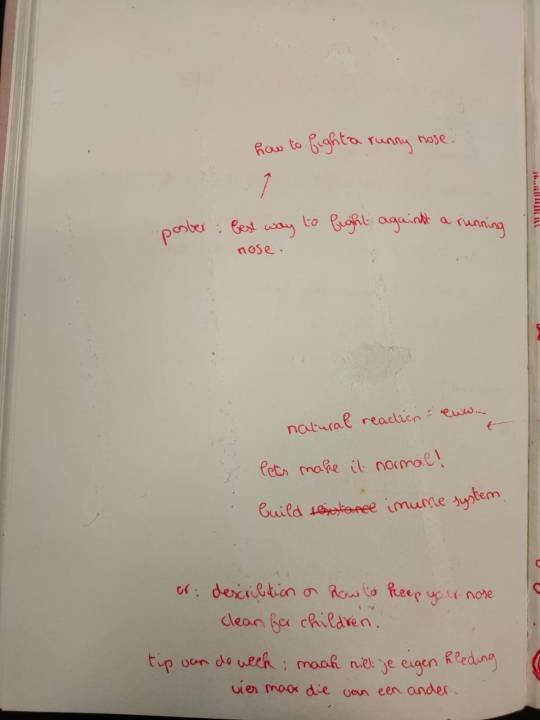 how to fight a runny nose.
poster : best way to fight against a running
nose.
natural reaction = euw...
lets make it normal!
build resistance imume system.
or : description on how to keep your nose
clean for children.
tip van de week : maak niet je eigen kleding
vies maar die van een ander.